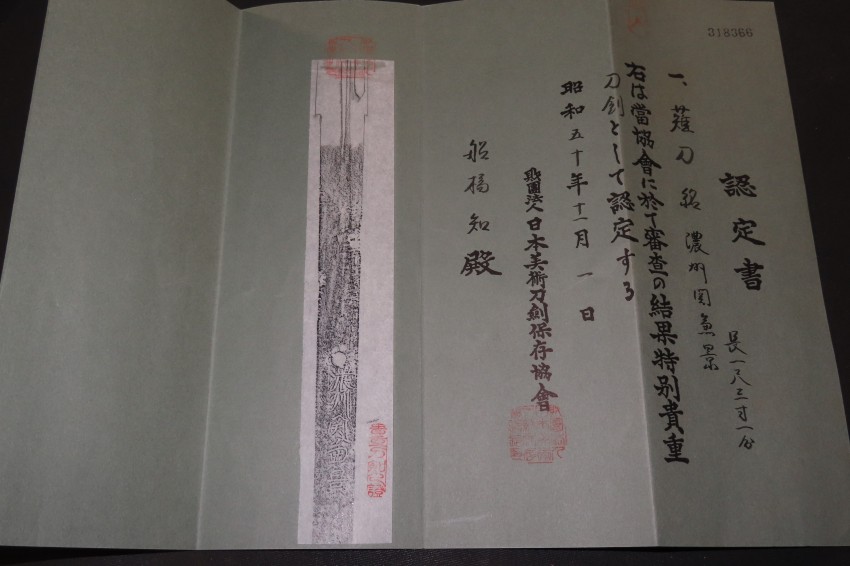 318366
認定書
一、薙刀 銘 濃州関兼景 長一尺三寸一分
右は當協會に於て審査の結果特別貴重
刀剣として認定する
昭和五十年十一月一日
財團法人日本美術刀劍保存協會
船橋知殿
濃州関兼